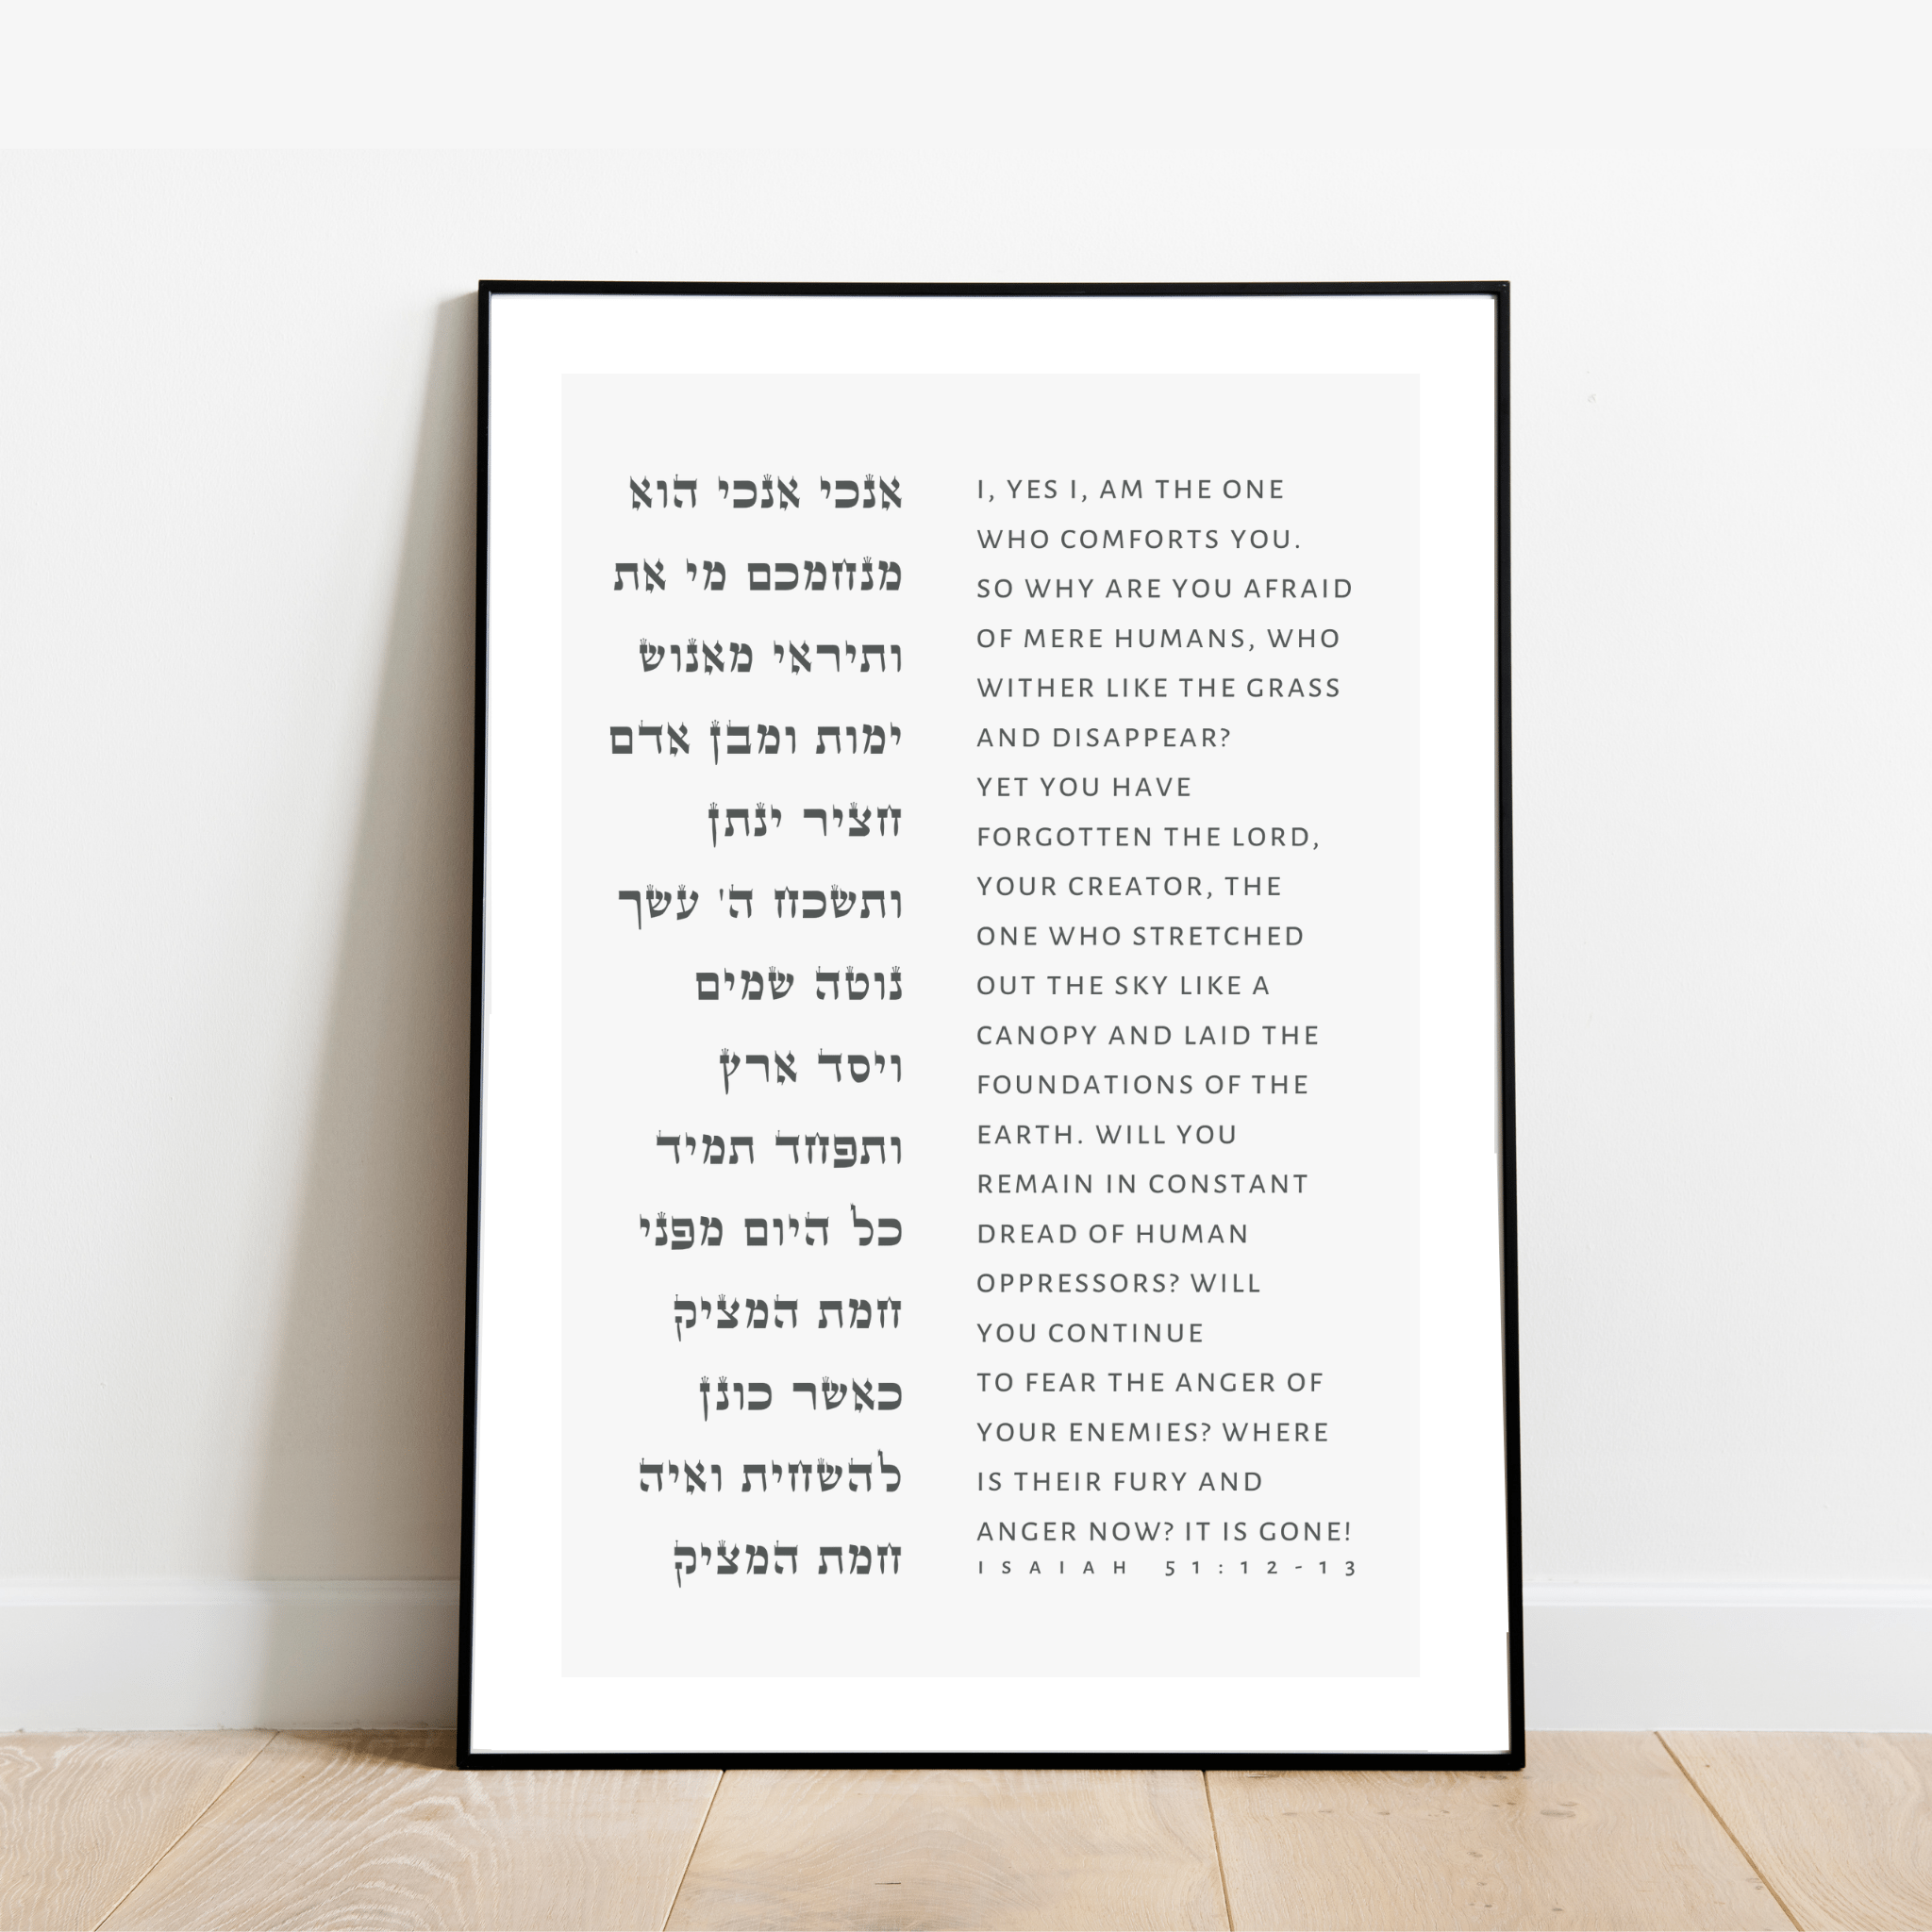 אנכי אנכי הוא
מנחמכם מי את
ותיראי מאנוש
ימות ומבן אדם
חציר ינתן
ותשכח ה' עשך
נוטה שמים
ויסד ארץ
ותפחד תמיד
כל היום מפני
חמת המציק
כאשר כונן
להשחית ואיה
חמת המציק
I, YES I, AM THE ONE
WHO COMFORTS YOU.
SO WHY ARE YOU AFRAID
OF MERE HUMANS, WHO
WITHER LIKE THE GRASS
AND DISAPPEAR?
YET YOU HAVE
FORGOTTEN THE LORD,
YOUR CREATOR, THE
ONE WHO STRETCHED
OUT THE SKY LIKE A
CANOPY AND LAID THE
FOUNDATIONS OF THE
EARTH. WILL YOU
REMAIN IN CONSTANT
DREAD OF HUMAN
OPPRESSORS? WILL
YOU CONTINUE
TO FEAR THE ANGER OF
YOUR ENEMIES? WHERE
IS THEIR FURY AND
ANGER NOW? IT IS GONE!
ISAIAH 51:12-13